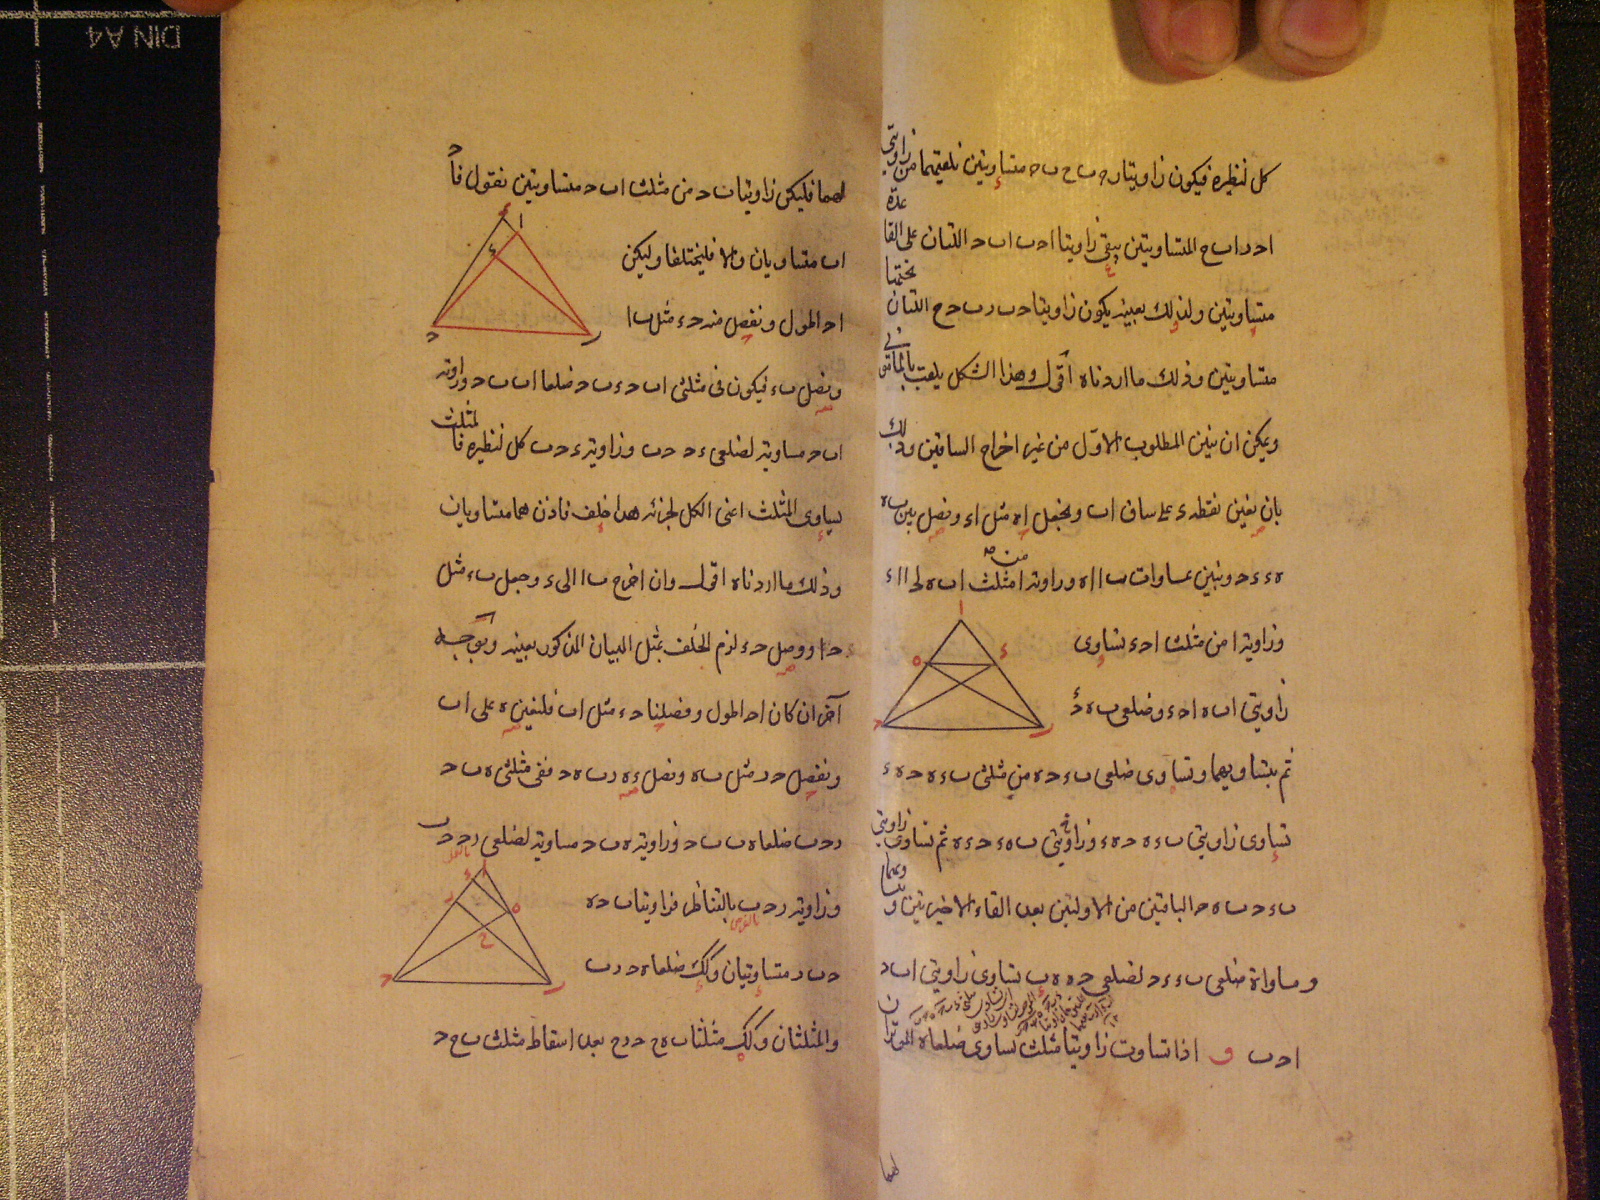 كل لنظيره فيكون زاويتا ح ب ح ب ح متساويتين نلقيهما من زاويتي
ا ح ر ا ب ح المتساويتين يبقى زاويتا ا ح ب ا ب ح اللتان على القاعدة
متساويتين ولذلك بعينه يكون زاويتا ح ب ر ب ح ح اللتان تحتها
متساويتين وذلك ما اردناه اقول وهذا الشكل يلقب بالمأموني
ويمكن ان نبين المطلوب الاول من غير اخراج الساقين وذلك
بان نعين نقطة ء على ساق ا ب ونجعل ا ه مثل ا ء ونصل بين ب ه
ه ء ء ح ونبين بمساوات ب ا ا ه وزاوية ا من مثلث ا ب ه لح ا ا ء
وزاوية ا من مثلث ا ح ء تساوى
زاويتي ا ب ه ا ح ء وضلعي ب ه ح ء
ثم بتساويهما وتساوى ضلعي ب ء ح ه من مثلثي ب ء ه ح ه ء
تساوى زاويتي ب ء ه ح ه ء وزاويتي ب ه ء ح ء ه ثم تساوى زاويتي
ب ء ح ب ه ح الباقيتين من الاوليين بعد القاء الاخيرتين وبتساويهما
ومساواة ضلعي ب ء ء ح لضلعي ح ه ه ب تساوى زاويتي ا ب ح
ا ح ب و اذا تساوت زاويتا مثلث تساوى ضلعاه الموتران
لهما
لهما فليكن زاويتا ب ح من مثلث ا ب ح متساويتين نقول فا ح
ا ب متساويان والا فليختلفا وليكن
ا ح اطول ونفصل منه ح ء مثل ب ا
ونصل ب ء فيكون في مثلثي ا ب ح ء ب ح ضلعا ا ب ب ح وزاوية
ا ب ح مساوية لضلعي ء ح ح ب وزاوية ء ح ب كل لنظيره فالمثلث
يساوى المثلث اعنى الكل لجزئه هذا خلف فاذن هما متساويان
وذلك ما اردناه اقول وان اخرج ب ا الى ء وجعل ب ء مثل
ح ا ووصل ح ء لزم الخلف بمثل البيان المذكور بعينه وبوجه
آخر ان كان ا ح اطول وفصلنا ح ء مثل ا ب فلنعين ه على ا ب
ونفصل ح ر مثل ب ه ونصل ء ه ر ب ه ح ففى مثلثي ه ب ح
ر ح ب ضلعا ه ب ب ح وزاوية ه ب ح مساوية لضلعي ر ح ح ب
وزاوية ر ح ب بالتناظر فزاويتا ب ح ه
ح ب ر متساويتان وكك ضلعا ه ح ر ب
والمثلثان وكك مثلثا ب ه ح ح ر ح بعد اسقاط مثلث ب ح ح